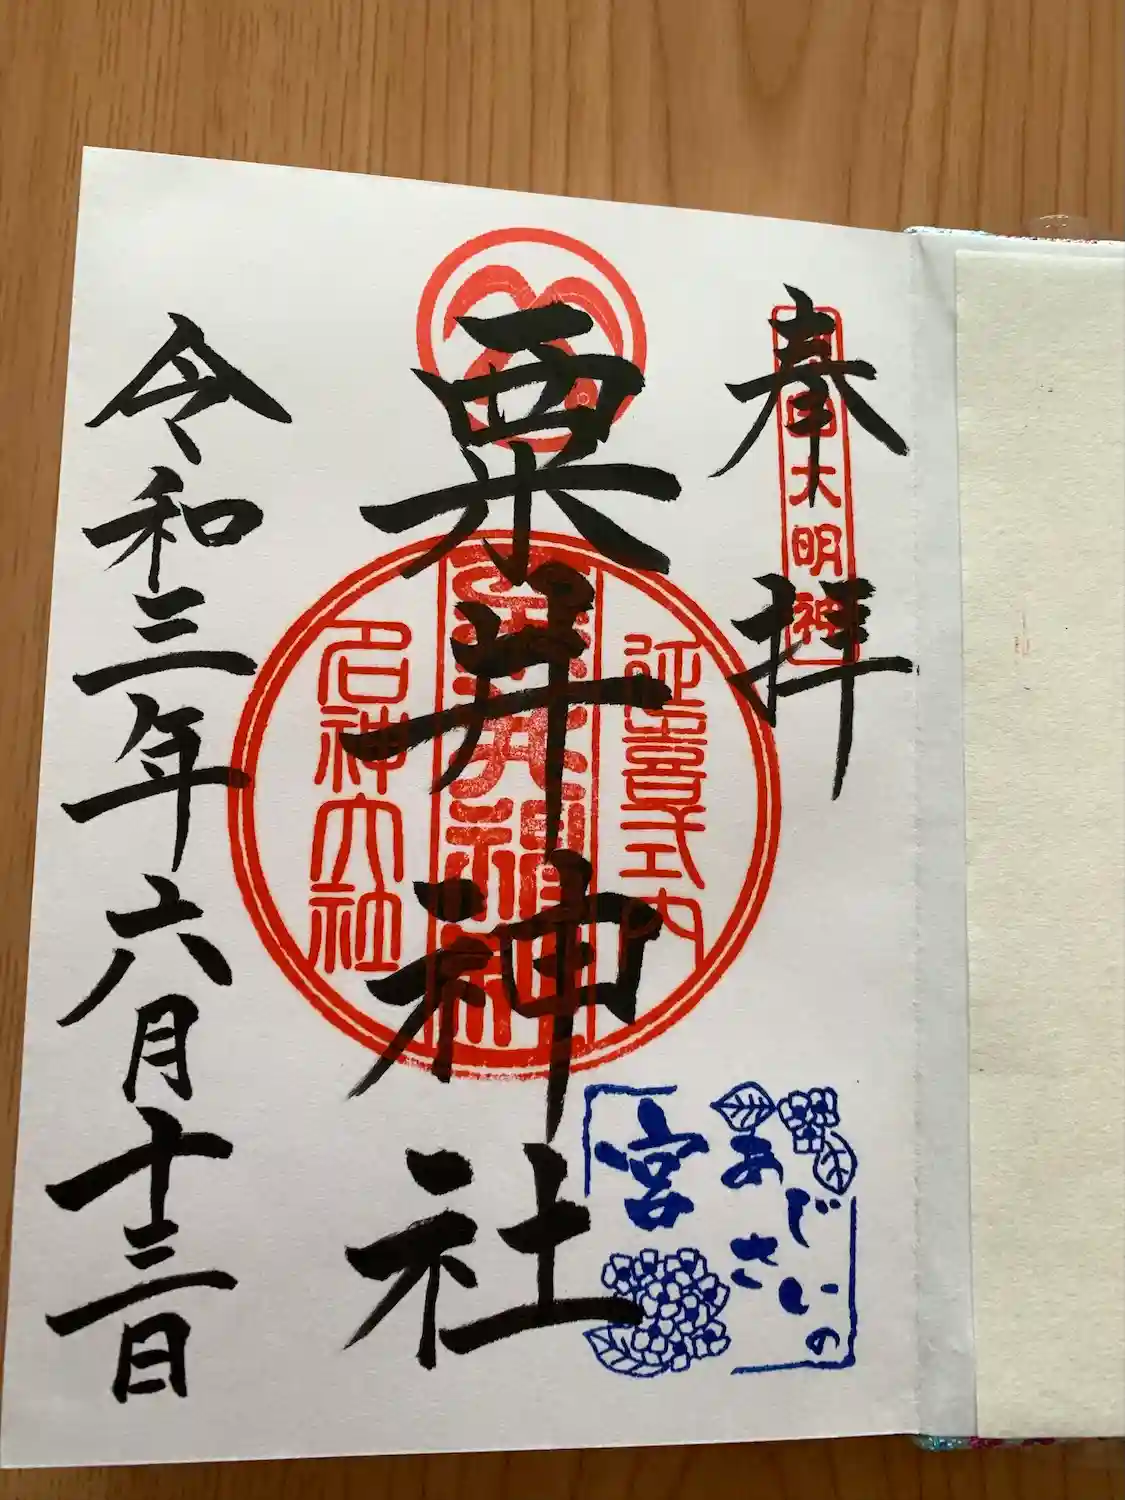 奉拝
大明神
粟井神社
延喜式内
粟井神社
名神大社
あじさいの
宮
令和三年六月十三日